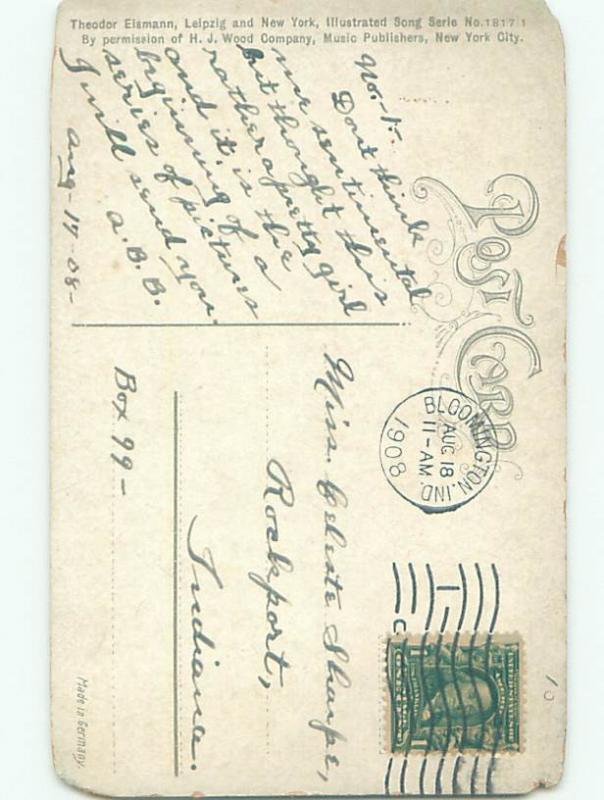 Theodor Eismann, Leipzig and New York, Illustrated Song Serie No. 1817 1
By permission of H. J. Wood Company, Music Publishers, New York City.
No. 1.
Don't think
me sentimental
but thought this
rather a pretty girl
and it is the
beginning of a
series of pictures
I will send you.
A. B. B.
Aug - 17 - 08 -
POST CARD
BLOOMINGTON, IND.
AUG 18
11 - AM
1908
Miss. Celeste Sharpe,
Rockport,
Indiana.
Box 99 -
Made in Germany.
10